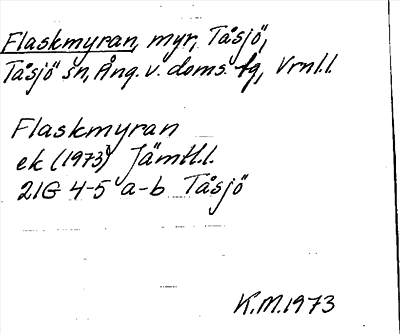 Flaskmyran, myr, Tåsjö,
Tåsjö sn, Ång. v. doms. tg, Vrnl.l.
Flaskmyran
ek (1973) Jämtl.l.
21G 4-5 a-b Tåsjö
K.M.1973